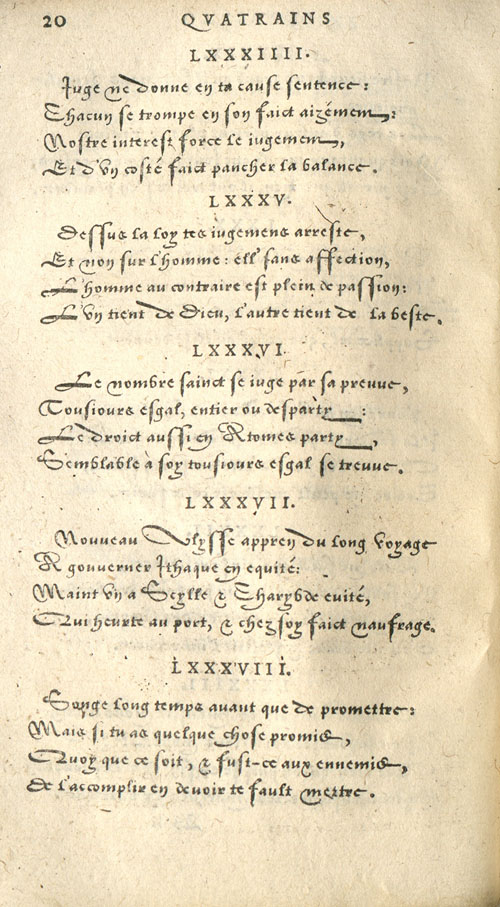 20 QVATRAINS
LXXXIIII.
Juge ne donne en ta cause sentence:
Chacun se trompe en son faict aizément:
Nostre interest force le iugement,
Et d'vn costé faict pancher la balance.
LXXXV.
Dessus la loy tes iugemens arreste,
Et non sur l'homme: ell' sans affection,
L'homme au contraire est plein de passion:
L'vn tient de Dieu, l'autre tient de la beste.
LXXXVI.
Le nombre sainct se iuge par sa preuue,
Tousiours esgal, entier ou desparty:
Le droict aussi en Atomes party,
Semblable à soy tousiours esgal se treuue.
LXXXVII.
Nouueau Vlysse appren du long voyage
A gouuerner Ithaque en equité:
Maint vn a Scylle & Charybde euité,
Qui heurte au port, & chez soy faict naufrage.
LXXXVIII.
Songe long temps auant que de promettre:
Mais si tu as quelque chose promis,
Quoy que ce soit, & fust-ce aux ennemis,
De l'accomplir en deuoir te fault mettre.